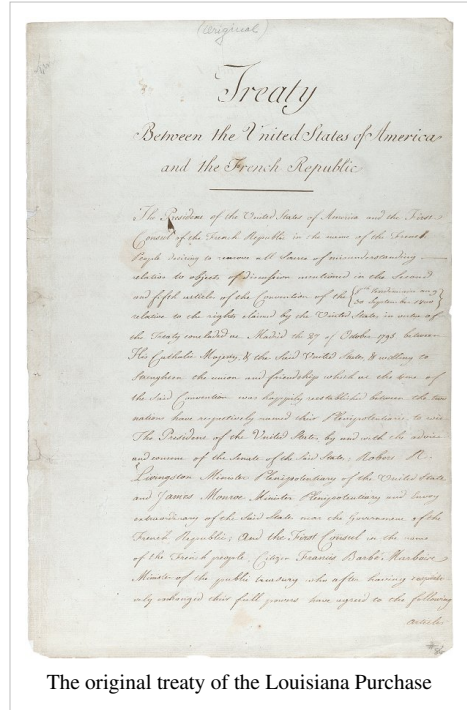 (Original)
Treaty
Between the United States of America
and the French Republic
The President of the United States of America and the First
Consul of the French Republic in the name of the French
People desiring to remove all Source of misunderstanding
relative to objects of discussion mentioned in the Second
and fifth articles of the Convention of the
30 September 1800
relative to the rights claimed by the United States in virtue of
the Treaty concluded at Madrid the 27 of October 1795 between
His Catholic Majesty, & the Said United States, & willing to
Strengthen the union and friendship which at the time of
the Said Convention was happily reestablished between the two
nations have respectively named their Plenipotentiaries to wit
The President of the United States, by and with the advice
and consent of the Senate of the Said States; Robert R.
Livingston Minister Plenipotentiary of the United States
and James Monroe Minister Plenipotentiary and Envoy
extraordinary of the Said States near the Government of the
French Republic; And the First Consul in the name
of the French people, Citizen Francis Barbé Marbois
Minister of the public treasury who after having respecti-
vely exchanged their full powers have agreed to the following
articles
The original treaty of the Louisiana Purchase